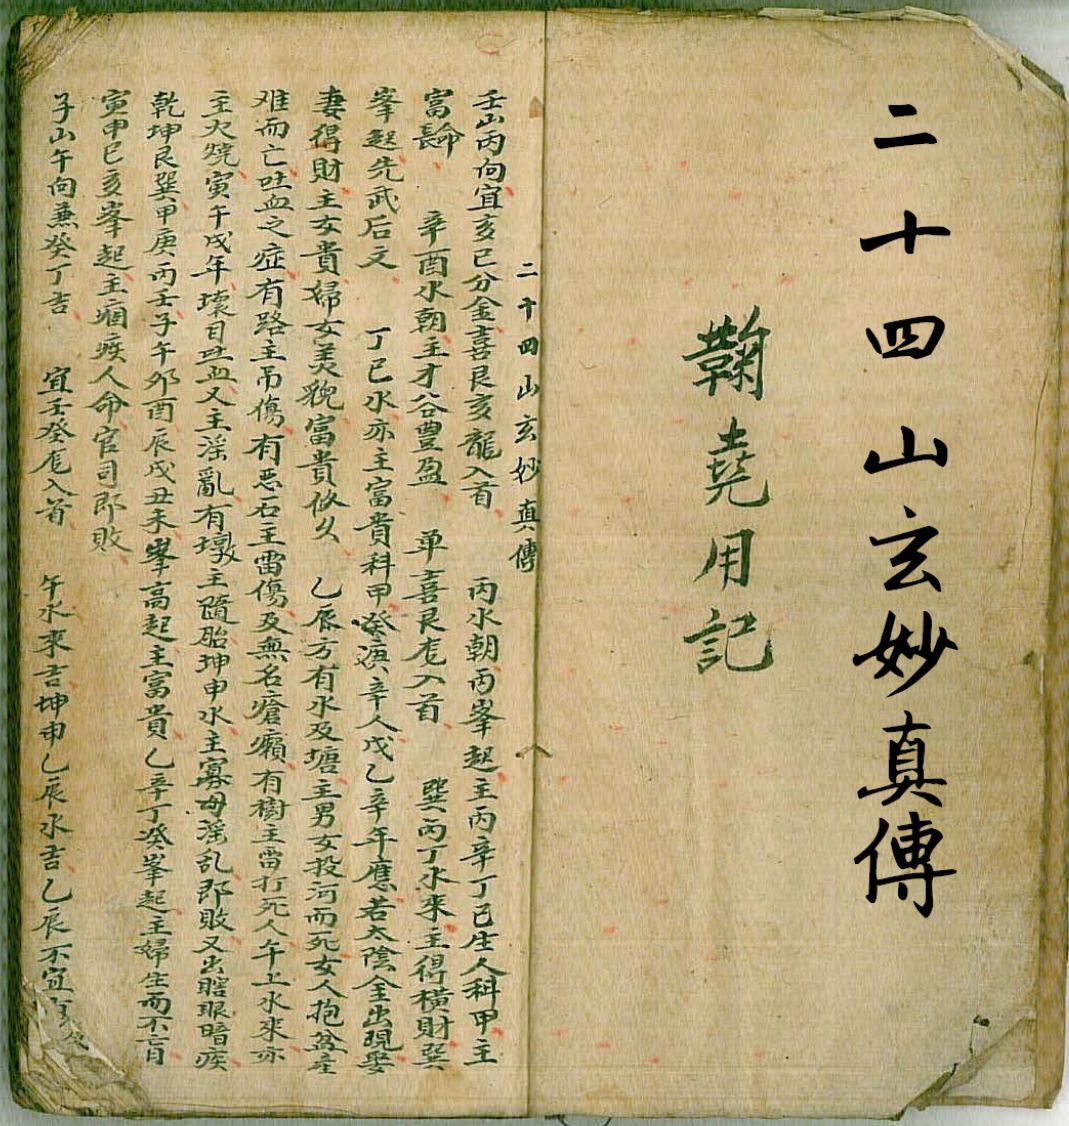 二十四山玄妙真傳
鞠堯用記
二十四山玄妙真傳
壬山丙向宜亥巳分金喜艮亥龍入首 丙水朝丙峯起主丙辛丁巳生人科甲主
富 辛酉水朝主才谷豊盈 单喜艮入首 巽丙丁水來主得橫財巽
峯起先武后文 丁巳水亦主富貴科甲癸辛人戊乙辛年應若太陰金出現娶
妻得財主女貴婦女美貌富貴悠久 乙辰方有水及塘主男女投河而死女人抱盆产
难而亡吐血之症有路主吊傷有恶石主雷傷及無名瘡癩有樹主雷打死人午上水來亦
主火烧寅午戌年壞目吐血又主淫亂有墩主隨胎坤申水主寡母淫乱即敗又出瞎眼暗疾
乾坤艮巽甲庚丙壬子午夘酉辰戌丑未峯高起主富貴乙辛丁癸峯起主婦生而不育
寅申巳亥峯起主痼疾人命官司即敗
子山午向兼癸丁吉 宜壬癸入首 午水來吉坤申乙辰水吉乙辰不宜